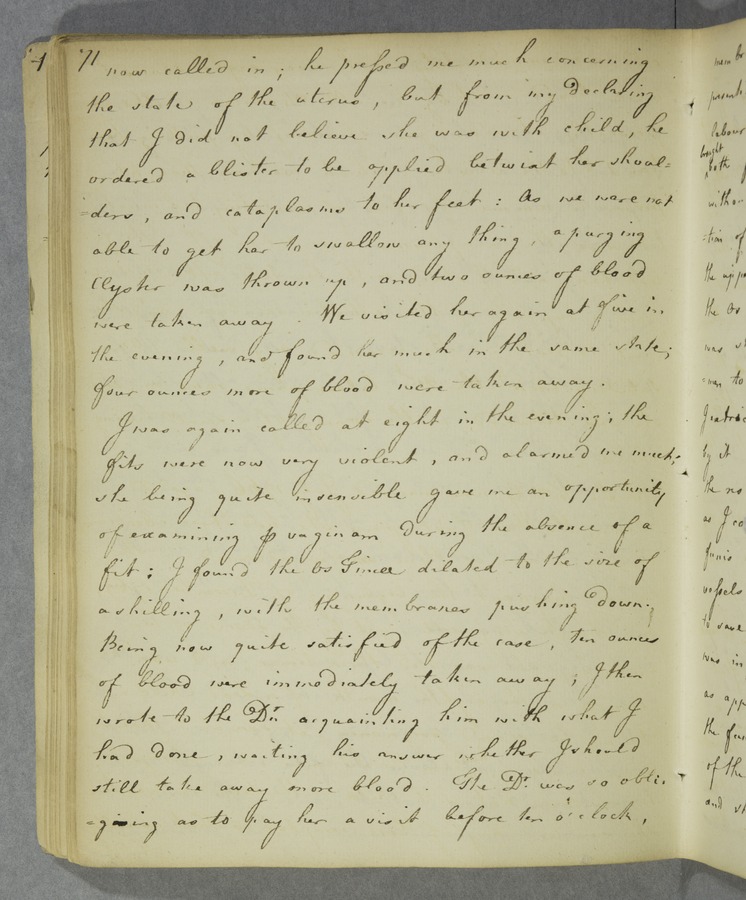 71
now called in ; he pressed me much concerning
the state of the uterus , but from my Declaring
that I did not believe she was with child , he
ordered a blister to be applied betwixt her shoul=
=ders , and cataplasms to her feet : As we were not
able to get her to swallow any thing , a purging
Clyster was thrown up , and two ounces of blood
were taken away . We visited her again at five in
the evening , and found her much in the same state ;
four ounces more of blood were taken away .
I was again called at eight in the evening ; the
fits were now very violent , and alarmed me much ;
she being quite insensible gave me an opportunity
of examining p vaginam during the absence of a
fit ; I found the Os Tincæ dilated to the size of
a shilling , with the membranes pushing down .
Being now quite satisfied of the case , ten ounces
of blood were immediately taken away ; I then
wrote to the Dr. acquainting him with what I
had done , waiting his answer whether I should
still take away more blood . The Dr. was so obli=
=ging as to pay her a visit before ten o'clock ,